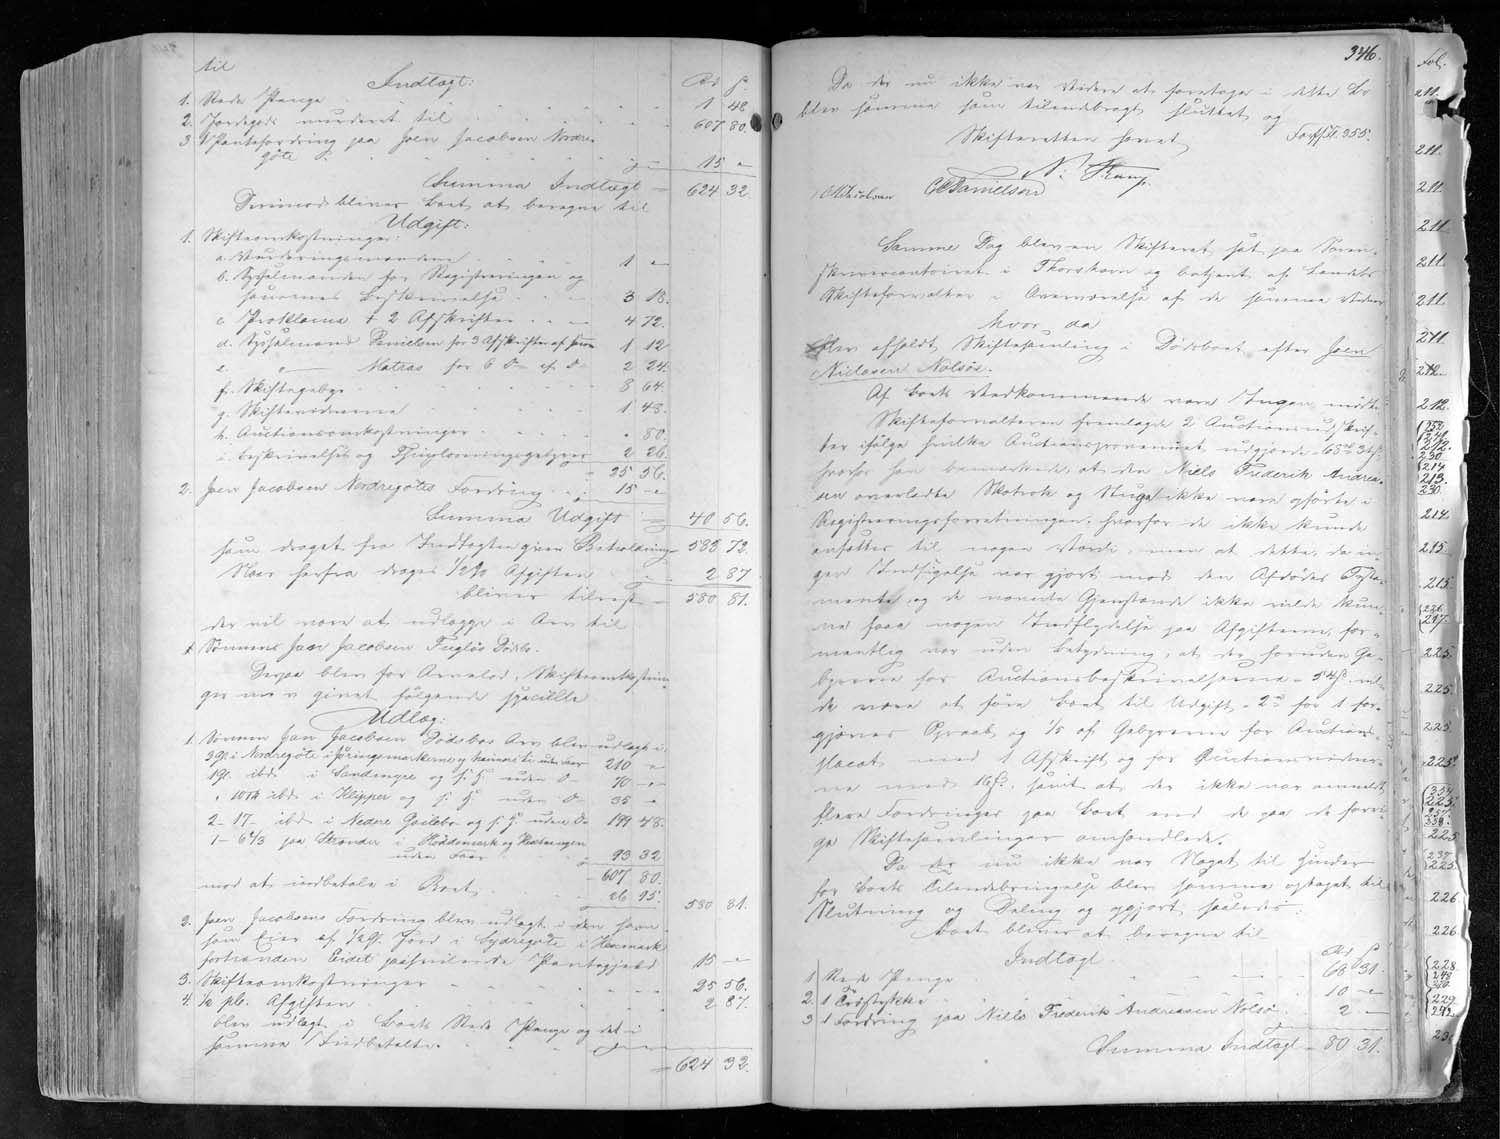 til
Indtægt:
Rd. ß.
1. Rede Penge 1 48.
2. Jordegods vurderet til 607 80.
3. 1 Pantefordring paa Joen Jacobsen Nordre-
göte 15 "
Summa Indtægt 624 32.
Derimod bliver Boet at beregne til
Udgift:
1. Skifteomkostninger:
a. Vurderingsmændene 1 "
b. Sysselmanden for Registreringen og
sammes Beskrivelse 3 18.
c. Proklama + 2 Afskrifter 4 72.
d. Sysselmand Danielsen for 3 Afskrifter af samme 1 12
e. " Matras for 6 Do af Do 2 24.
f. Skiftegebyr 8 64.
g. Skiftevidnerne 1 48.
h. Auctionsomkostninger " 80.
i. Beskrivelses og Thinglæsningsgebyrer 2 26.
25 56.
2. Joen Jacobsen Nordregötes Fordring 15 "
Summa Udgift 40 56.
som draget fra Indtægten giver Beholdning 583 72.
Naar herfra drages 1/2 % Afgiften 2 87
bliver tilrest 580 81.
der vil være at udlægge i Arv til
1. Sønnen Jan Jacobsen Fuglø Dødsbo.
Derpaa blev for Arvelod, Skifteomkostnin-
ger m. v. givet følgende specielle
Udlæg:
1. Sønnen Jan Jacobsen Dødsbos Arv blev udlagt i:
3 Gl. i Nordregöte i 210 "
1 Gl. ibd. i Sandmyre og s. H. uden Do 70 "
" 10 Sk. ibd. i Klipper og s. H. uden Do 35 "
2 - 17 - ibd. i Nedere Gorlebo og s. H. uden Do 199 48.
1 - 6 2/3 paa Strender i Höddemark og
uden Faar 93 32
607 80.
mod at indbetale i Boet 26 95.
580 81.
2. Joen Jacobsens Fordring blev udlagt i den ham
som Eier af 1/2 Gl. Jord i Sydregöte i Heimark
15 "
3. Skifteomkostninger 25 56.
4. 1/2 pCt. Afgiften 2 87.
blev udlagt i Boets Rede Penge og det i
samme Indbetalte.
624 32.
346.
Da der nu ikke var videre at foretage i dette Bo
blev samme som tilendebragt sluttet og
Skifteretten hævet Forts. fol. 355.
C C Danielsen
Samme Dag blev en Skifteret sat paa Soren-
skrivercontoiret i Thorshavn og betjent af Landets
Skifteforvalter i Overværelse af de samme Vidner
hvor da
blev afholdt Skiftesamling i Dødsboet efter Joen
Niclasen Nolsø.
Af Boets Vedkommende vare Ingen mødt.
Skifteforvalteren fremlagde 2 Auctionsudskrif-
ter ifølge hvilke Auctionsprovenuet udgjorde 65 Rd 31 ß.
hvorhos han bemærkede, at den Niels Frederik Andrea-
sen overladte Skotrok og Stuga ikke vare opførte i
Registreringsforretningen, hvorfor de ikke kunde
ansættes til nogen Værdi, men at dette, da in-
gen Indsigelse var gjort mod den Afdødes Testa-
mente, og de nævnte Gjenstande ikke vilde kun-
ne faae nogen Indflydelse paa Afgifterne, for-
mentlig var uden Betydning, at der foruden Ge-
byrerne for Auctionsbeskrivelserne 54 ß. vil-
de være at føre Boet til Udgift 2 Rd for 1 for-
gjæves Opraab og 1/5 af Gebyrerne for Auctions-
placat med 1 Afskrift og for Auctionsvidner-
ne med 16 ß., samt at der ikke var anmeldt
flere Fordringer paa Boet end de paa de forri-
ge Skiftesamlinger omhandlede.
Da der nu ikke var Noget til Hinder
for Boets Tilendebringelse blev samme optaget til
Slutning og Deling og opgjort saaledes:
Boet bliver at beregne til
Indtægt.
Rd. ß.
1 Rede Penge 68 31.
2. 1 10 "
3 1 Fordring paa Niels Frederik Andreasen Nolsø 2 "
Summa Indtægt 80 31.
Fol.
211.
211.
211.
211.
211.
211.
211.
212.
212.
214.
215.
215.
225.
225.
225.
225.
225.
226.
226.